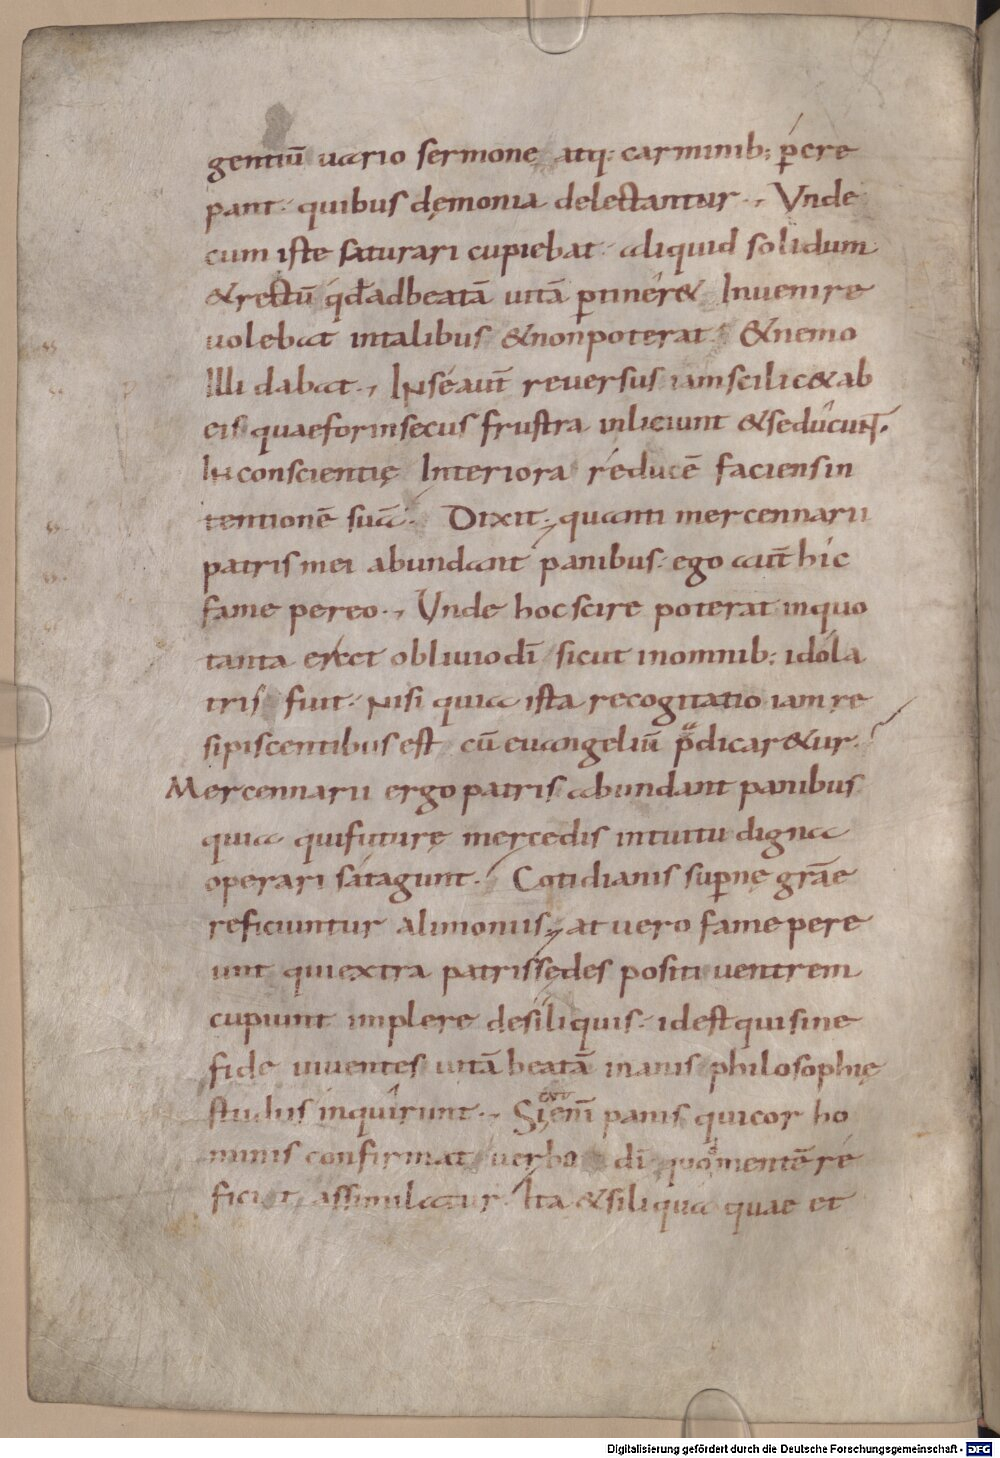 gentiū uario sermone atq: carminib; p̄cre
pant· quibus dęmonia delectantur·, Vnde
cum iste saturari cupiebat· aliquid solidum
&rectū qđadbeatā uitā ꝑtiner& Inuenire
uolebat intalibus &nonpoterat· &nemo
Illi dabat·, INséaut̄ reuersus iamscilic&ab
eis quaeforinsecus frustra inliciunt &seducuN̄T·
INconscientię Interiora réducē faciensin
tentionē suā· Dixit·, quanti mercennarii
patrismei abundant panibus· ego aut̄ hic
fame pereo·, Unde hocscire poterat inquo
tanta erat obliuiodī sicut inomnib; idola
tris fuit· Nisi quia ista recogitatio iamre
sipiscentibusest cū euangeliū p̄dicar&ur·
Mercennarii ergo patris abundant panibus
quia quifuturę mercedis intuitu digna
operari sátagunt· Cotidianis suꝑne grāe
reficiuntur alimoniis·, at uero fame pere
unt quiextra patrissędes positi uentrem
cupiunt implere desiliquis· idestquisine
fide uiuentes uitā beatā inanis philosophię
studiis inquirunt·, Sicut enī panis quicor ho
minis confirmat uerbo dī quomentē ré
ficit assimilatur Ita &siliqua quae et
Digitalisierung gefördert durch die Deutsche Forschungsgemeinschaft - DFG